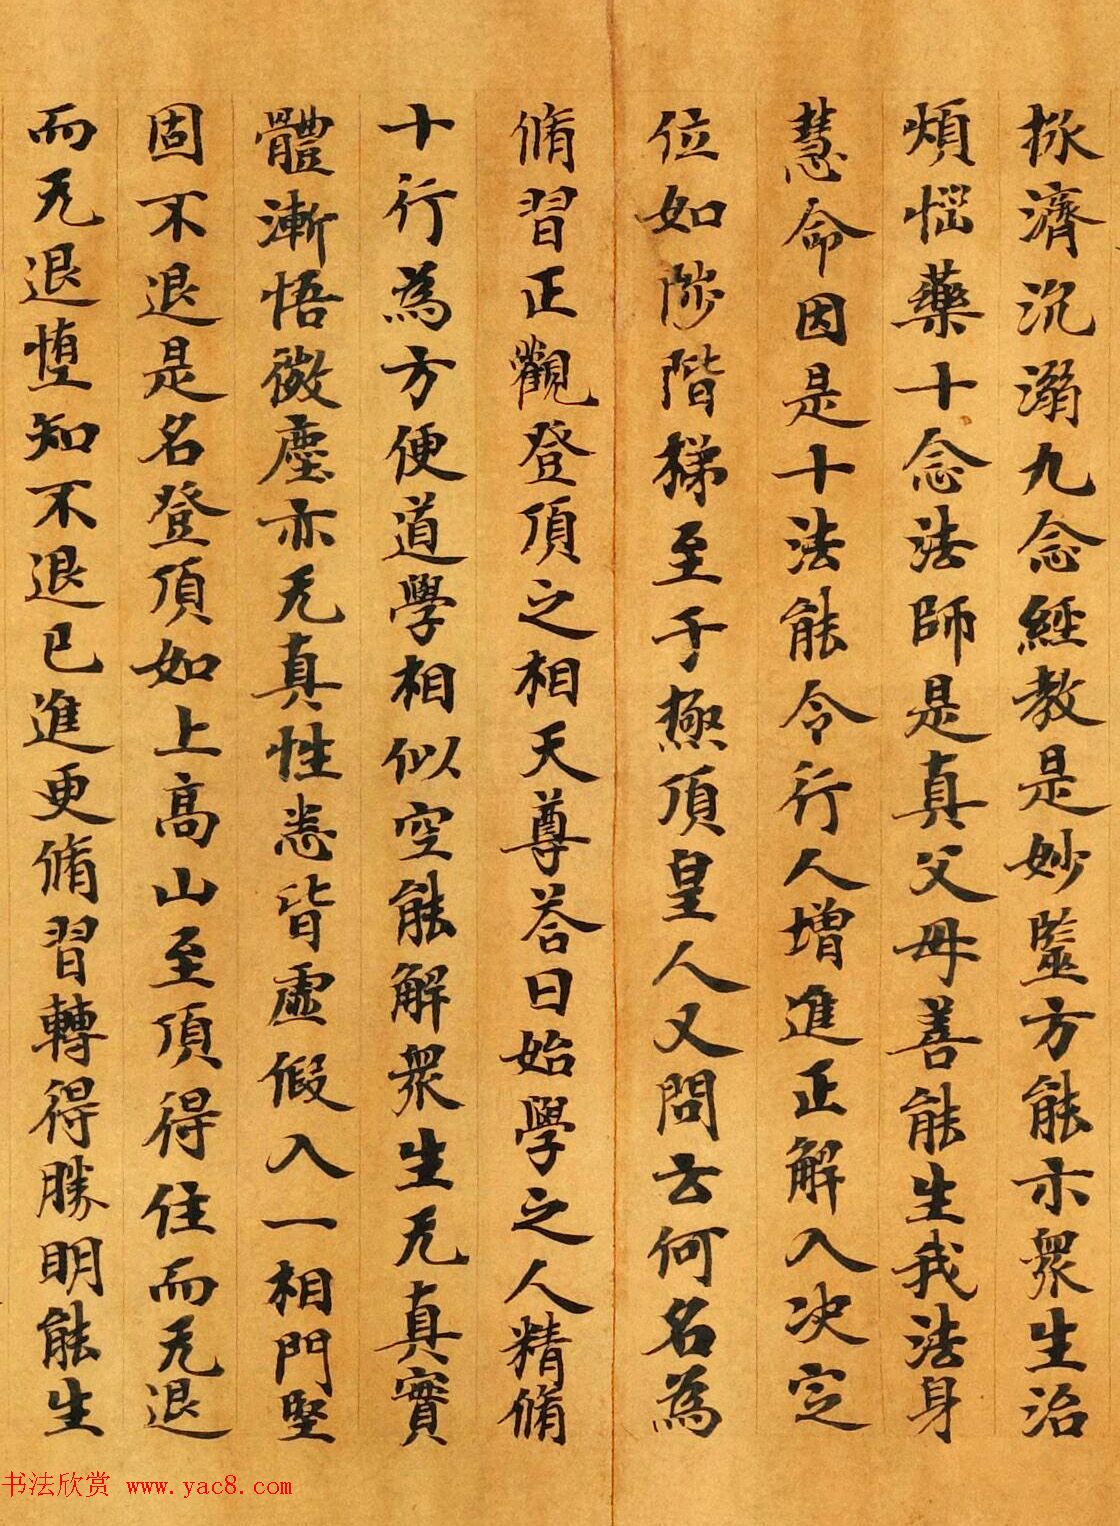 拯濟沉溺九念經教是妙毉方能示衆生治
煩惱藥十念法師是真父母善能生我法身
慧命因是十法能令行人增進正解入决定
位如陟階梯至于極頂皇人又問云何名為
脩習正觀登頂之相天尊荅曰始學之人精脩
十行為方便道學相似空能解衆生无真實
體漸悟微塵亦无真性悉皆虛假入一相門堅
固不退是名登頂如上高山至頂得住而无退
而无退墮知不退已進更脩習轉得勝明能生
书法欣赏 www.yac8.com